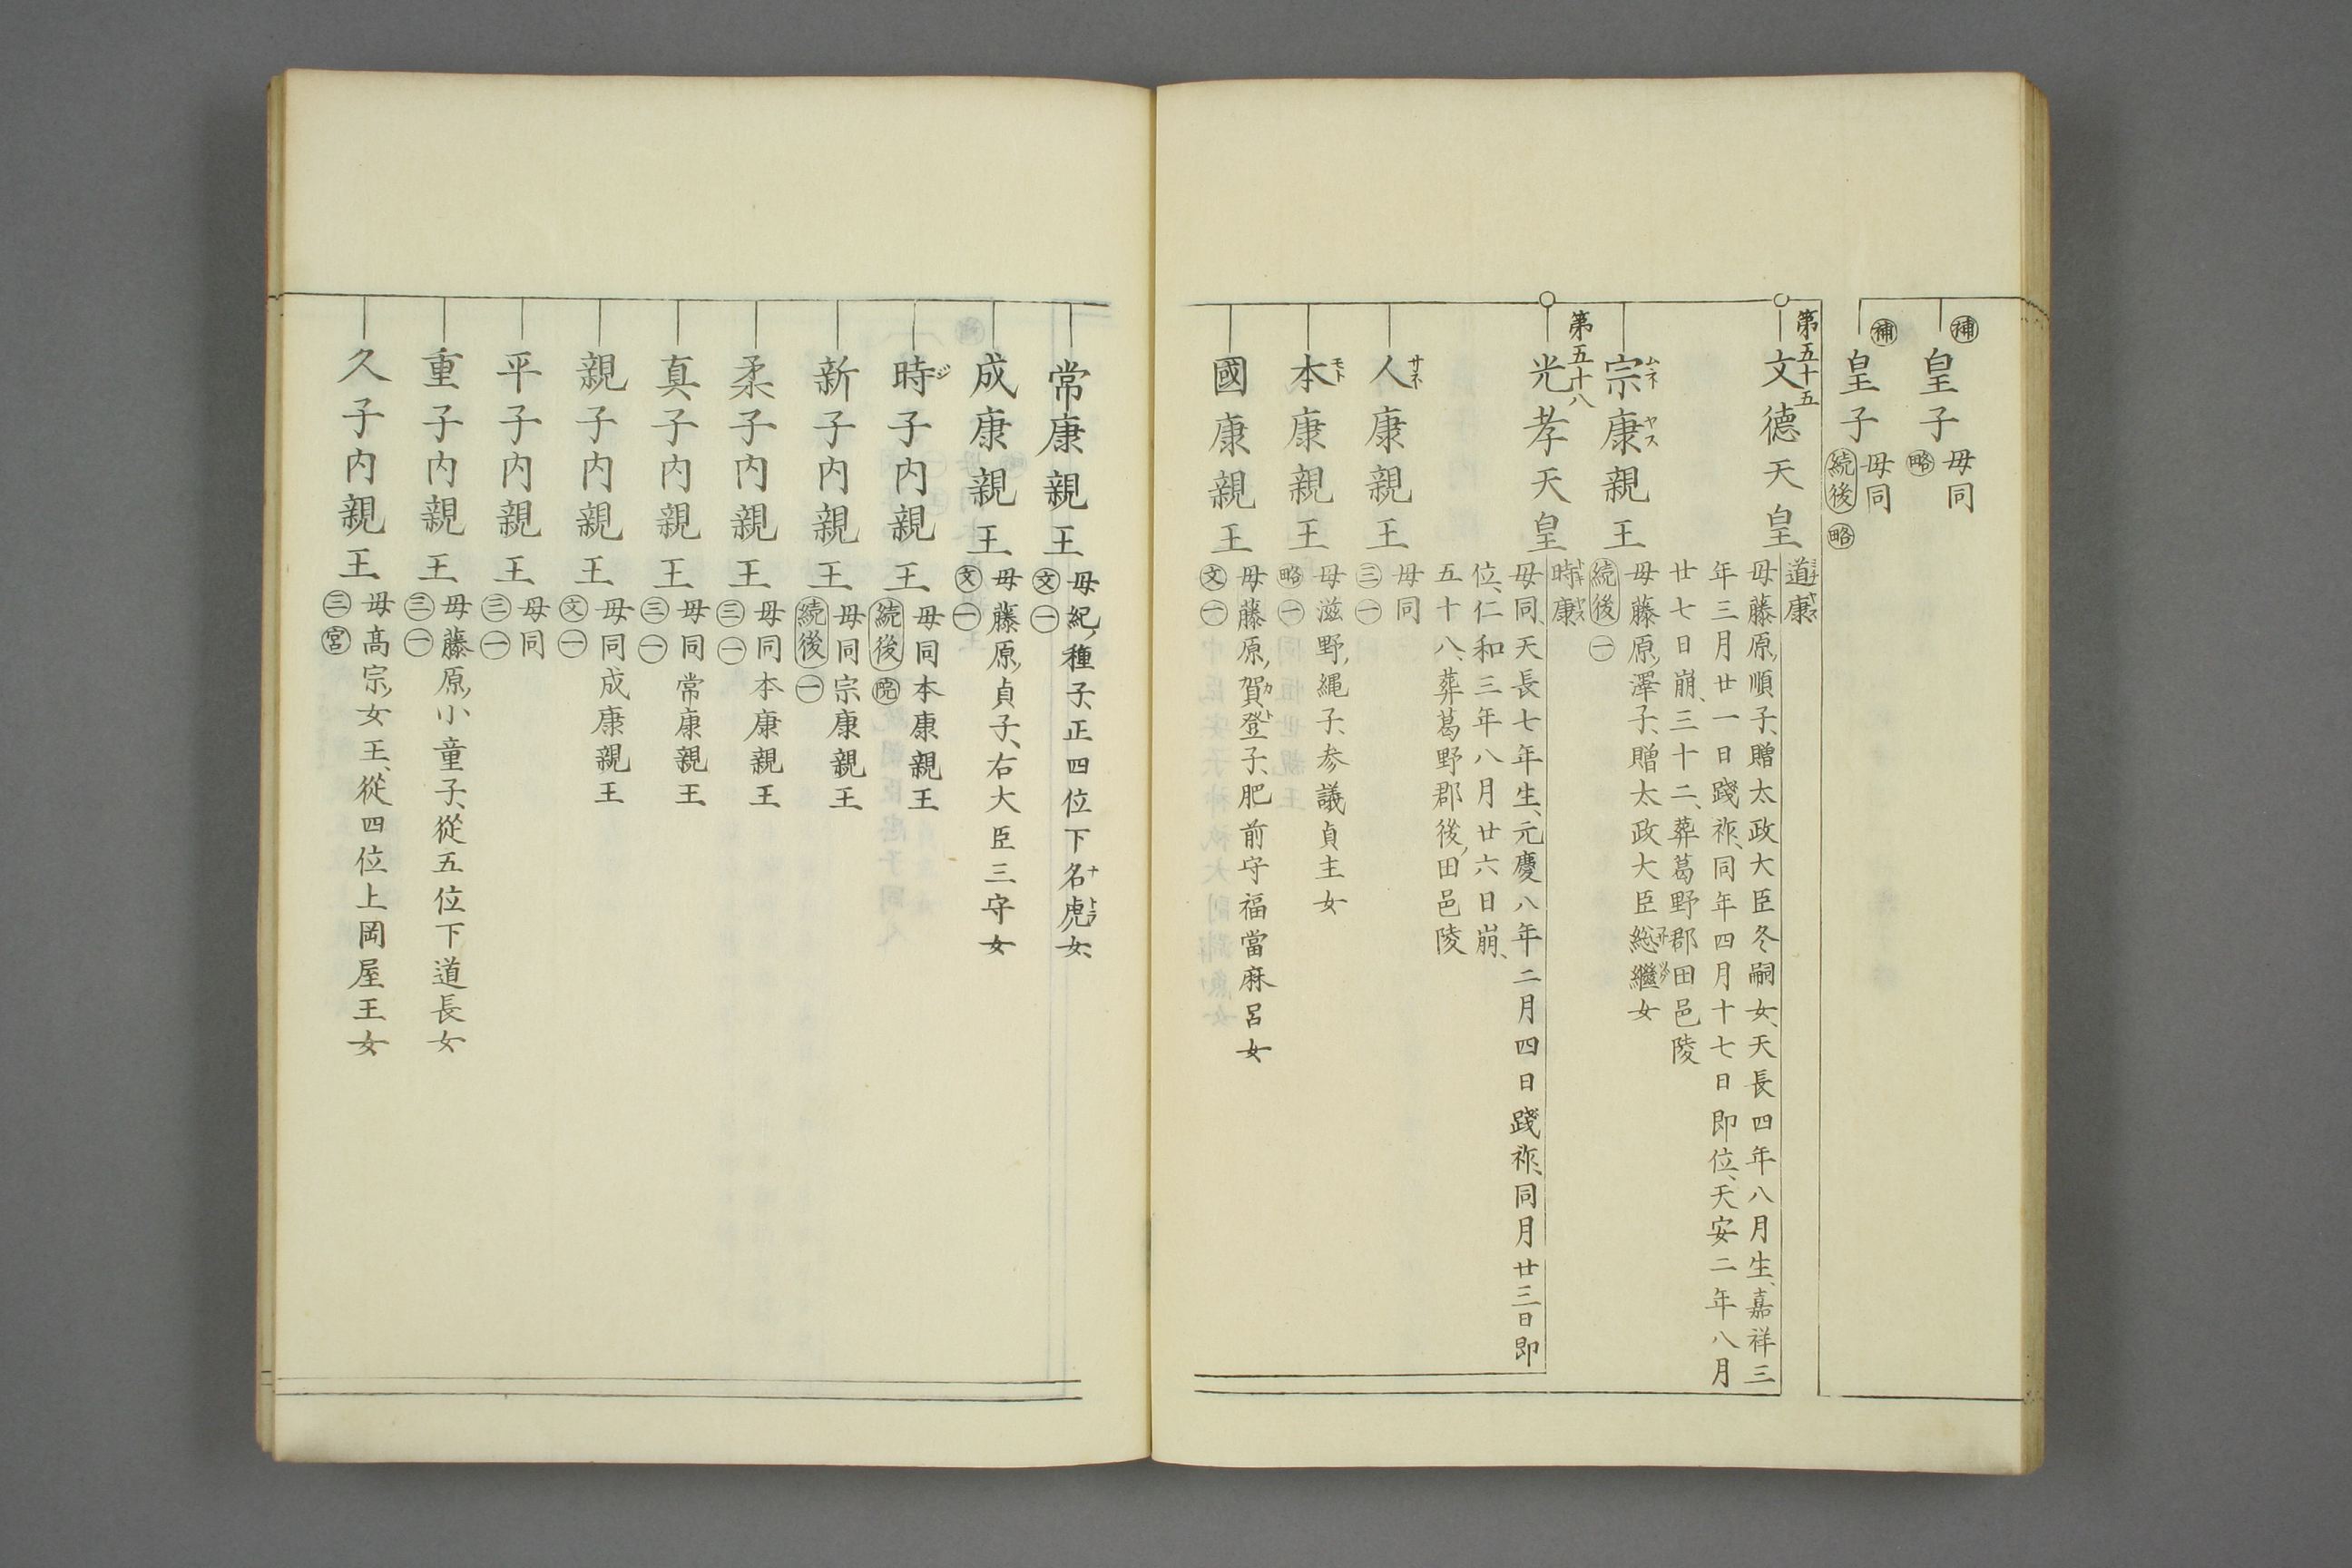 補
皇子
母同
略
補
皇子
母同
続後 略
第五十五
文德天皇
道康
母藤原順子、贈太政大臣冬嗣女、天長四年八月生、嘉祥三
年三月廿一日踐祚、同年四月十七日即位、天安二年八月
廿七日崩、三十二、葬葛野郡田邑陵
宗康親王
ムネ ヤス
母藤原澤子、贈太政大臣総繼女
続後 一
第五十八
光孝天皇
時康
母同、天長七年生、元慶八年二月四日踐祚、同月廿三日即
位、仁和三年八月廿六日崩、
五十八、葬葛野郡後田邑陵
人康親王
サネ
母同
三 一
本康親王
モト
母滋野縄子、参議貞主女
略 一
國康親王
母藤原賀登子、肥前守福當麻呂女
カト
文 一
常康親王
母紀種子、正四位下名虎女、
ナ トラ
文 一
成康親王
母藤原貞子、右大臣三守女
文 一
時子内親王
ジ
母同本康親王
続後 院
新子内親王
母同宗康親王
続後 一
柔子内親王
母同本康親王
三 一
真子内親王
母同常康親王
三 一
親子内親王
母同成康親王
文 一
平子内親王
母同
三 一
重子内親王
母藤原小童子、從五位下道長女
三 一
久子内親王
母髙宗女王、從四位上岡屋王女
三 宮